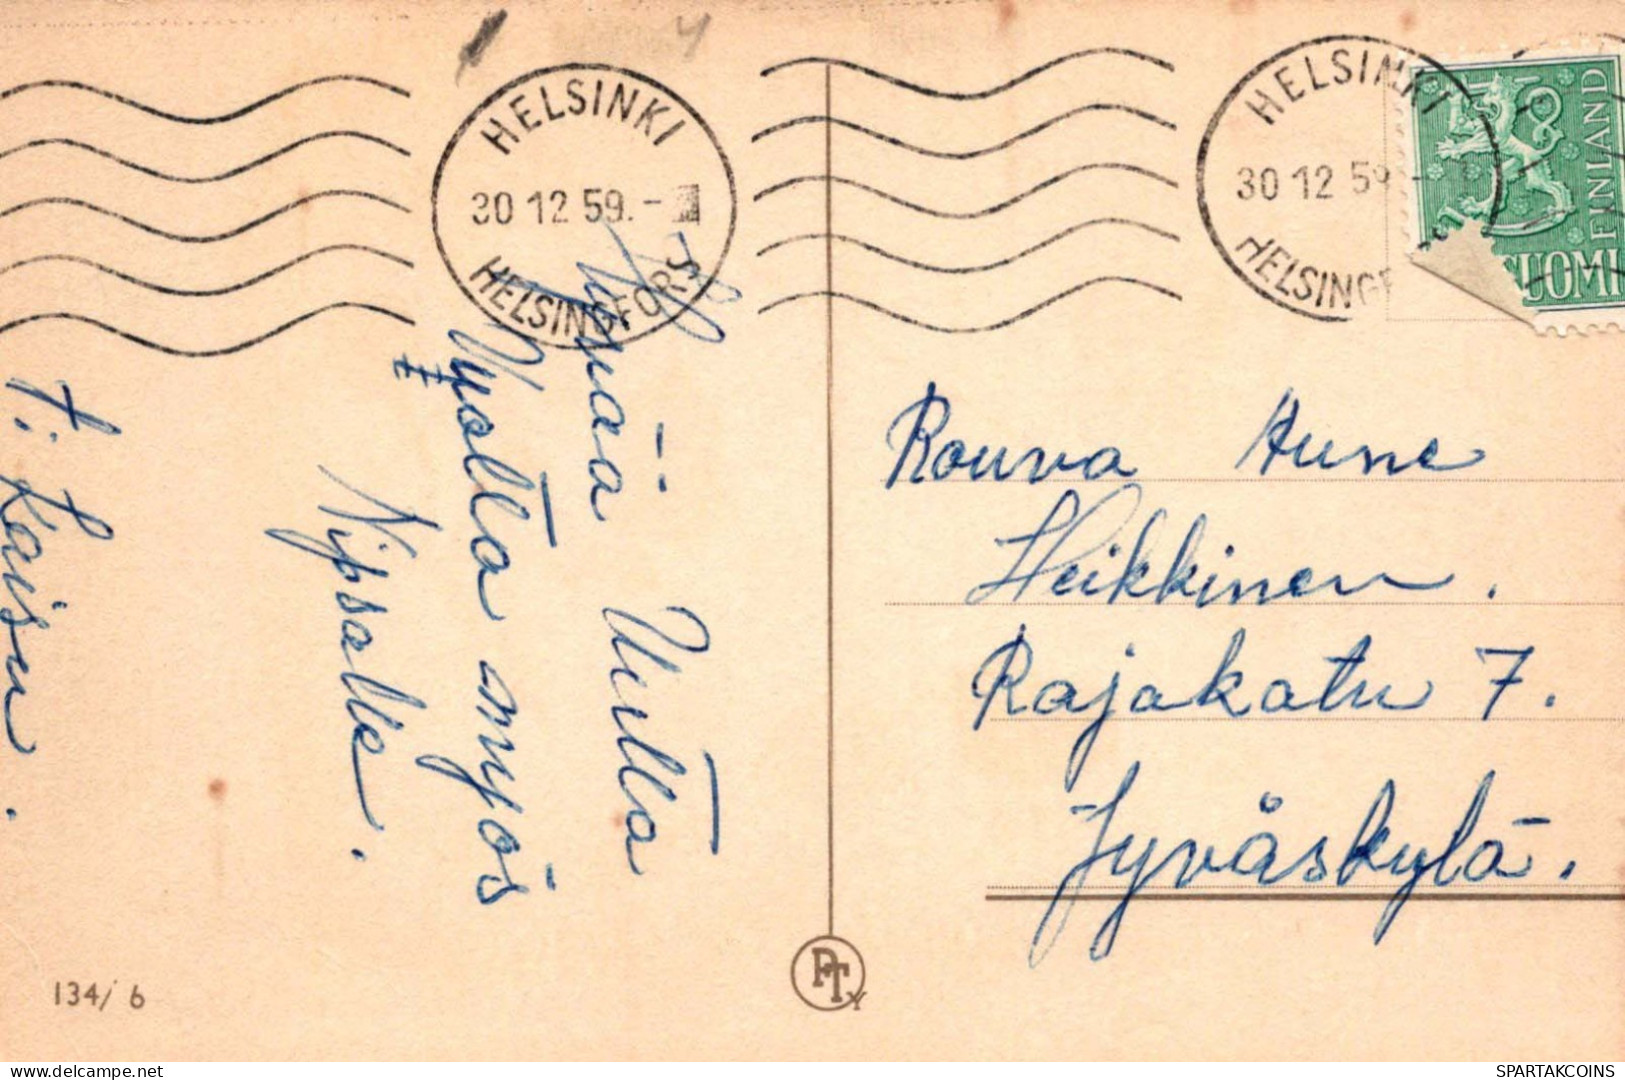 HELSINKI
30 12 59.-
HELSINGFORS
HELSINKI
30 12 59 -
HELSINGF
FINLAND
SUOMI
Hyvää Uutta
Vuotta myös
Nipsalle.
T: Kaisu.
Rouva Aune
Heikkinen.
Rajakatu 7.
Jyväskylä.
134/6
PTY
www.delcampe.net
SPARTAKCOINS